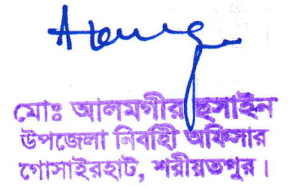 মোঃ আলমগীর হুসাইন
উপজেলা নির্বাহী অফিসার
গোসাইরহাট, শরীয়তপুর।